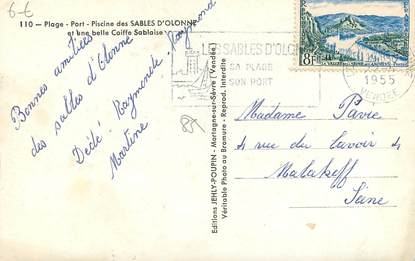 6-€
110 - Plage - Port - Piscine des SABLES D'OLONNE
et une belle Coiffe Sablaise
Bonnes amitiés
des sables d'Olonne
Dédé. Raymonde. Raymond
Martine
85
Editions JEHLY-POUPIN - Mortagne-sur-Sèvre (Vendée)
Véritable Photo au Bromure - Reprod. interdite
LES SABLES D'OLONNE
SA PLAGE
SON PORT
8F
1955
VENDEE
Madame Pavie
4 rue du lavoir
Malakoff
Seine